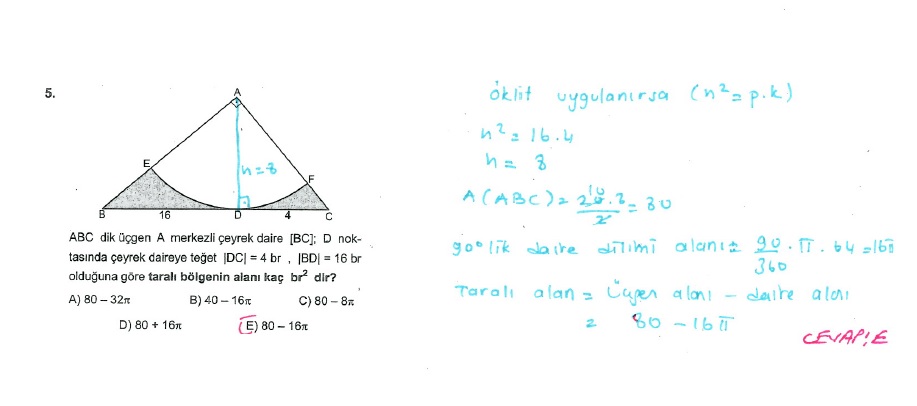 5.
A
E
h=8
F
B
16
D
4
C
ABC dik üçgen A merkezli çeyrek daire [BC]; D nok-
tasında çeyrek daireye teğet |DC| = 4 br , |BD| = 16 br
olduğuna göre taralı bölgenin alanı kaç br² dir?
A) 80 – 32π B) 40 – 16π C) 80 – 8π
D) 80 + 16π E) 80 – 16π
öklit uygulanırsa (h²=p.k)
h²=16.4
h= 8
A(ABC)= 20.8/2 = 80
90°lik daire dilimi alanı= 90/360 . π . 64 =16π
Taralı alan = Üçgen alanı – daire alanı
= 80 – 16π
CEVAP:E